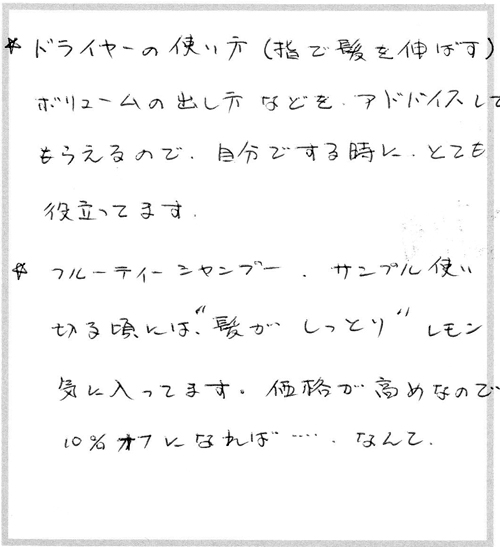 ☆ドライヤーの使い方(指で髪を伸ばす)
ボリュームの出し方などを、アドバイスして
もらえるので、自分でする時に、とても
役立ってます。
☆フルーティーシャンプー、サンプル使い
切る頃には、"髪が しっとり" レモン
気に入ってます。価格が高めなので
10%オフになれば……、なんて、